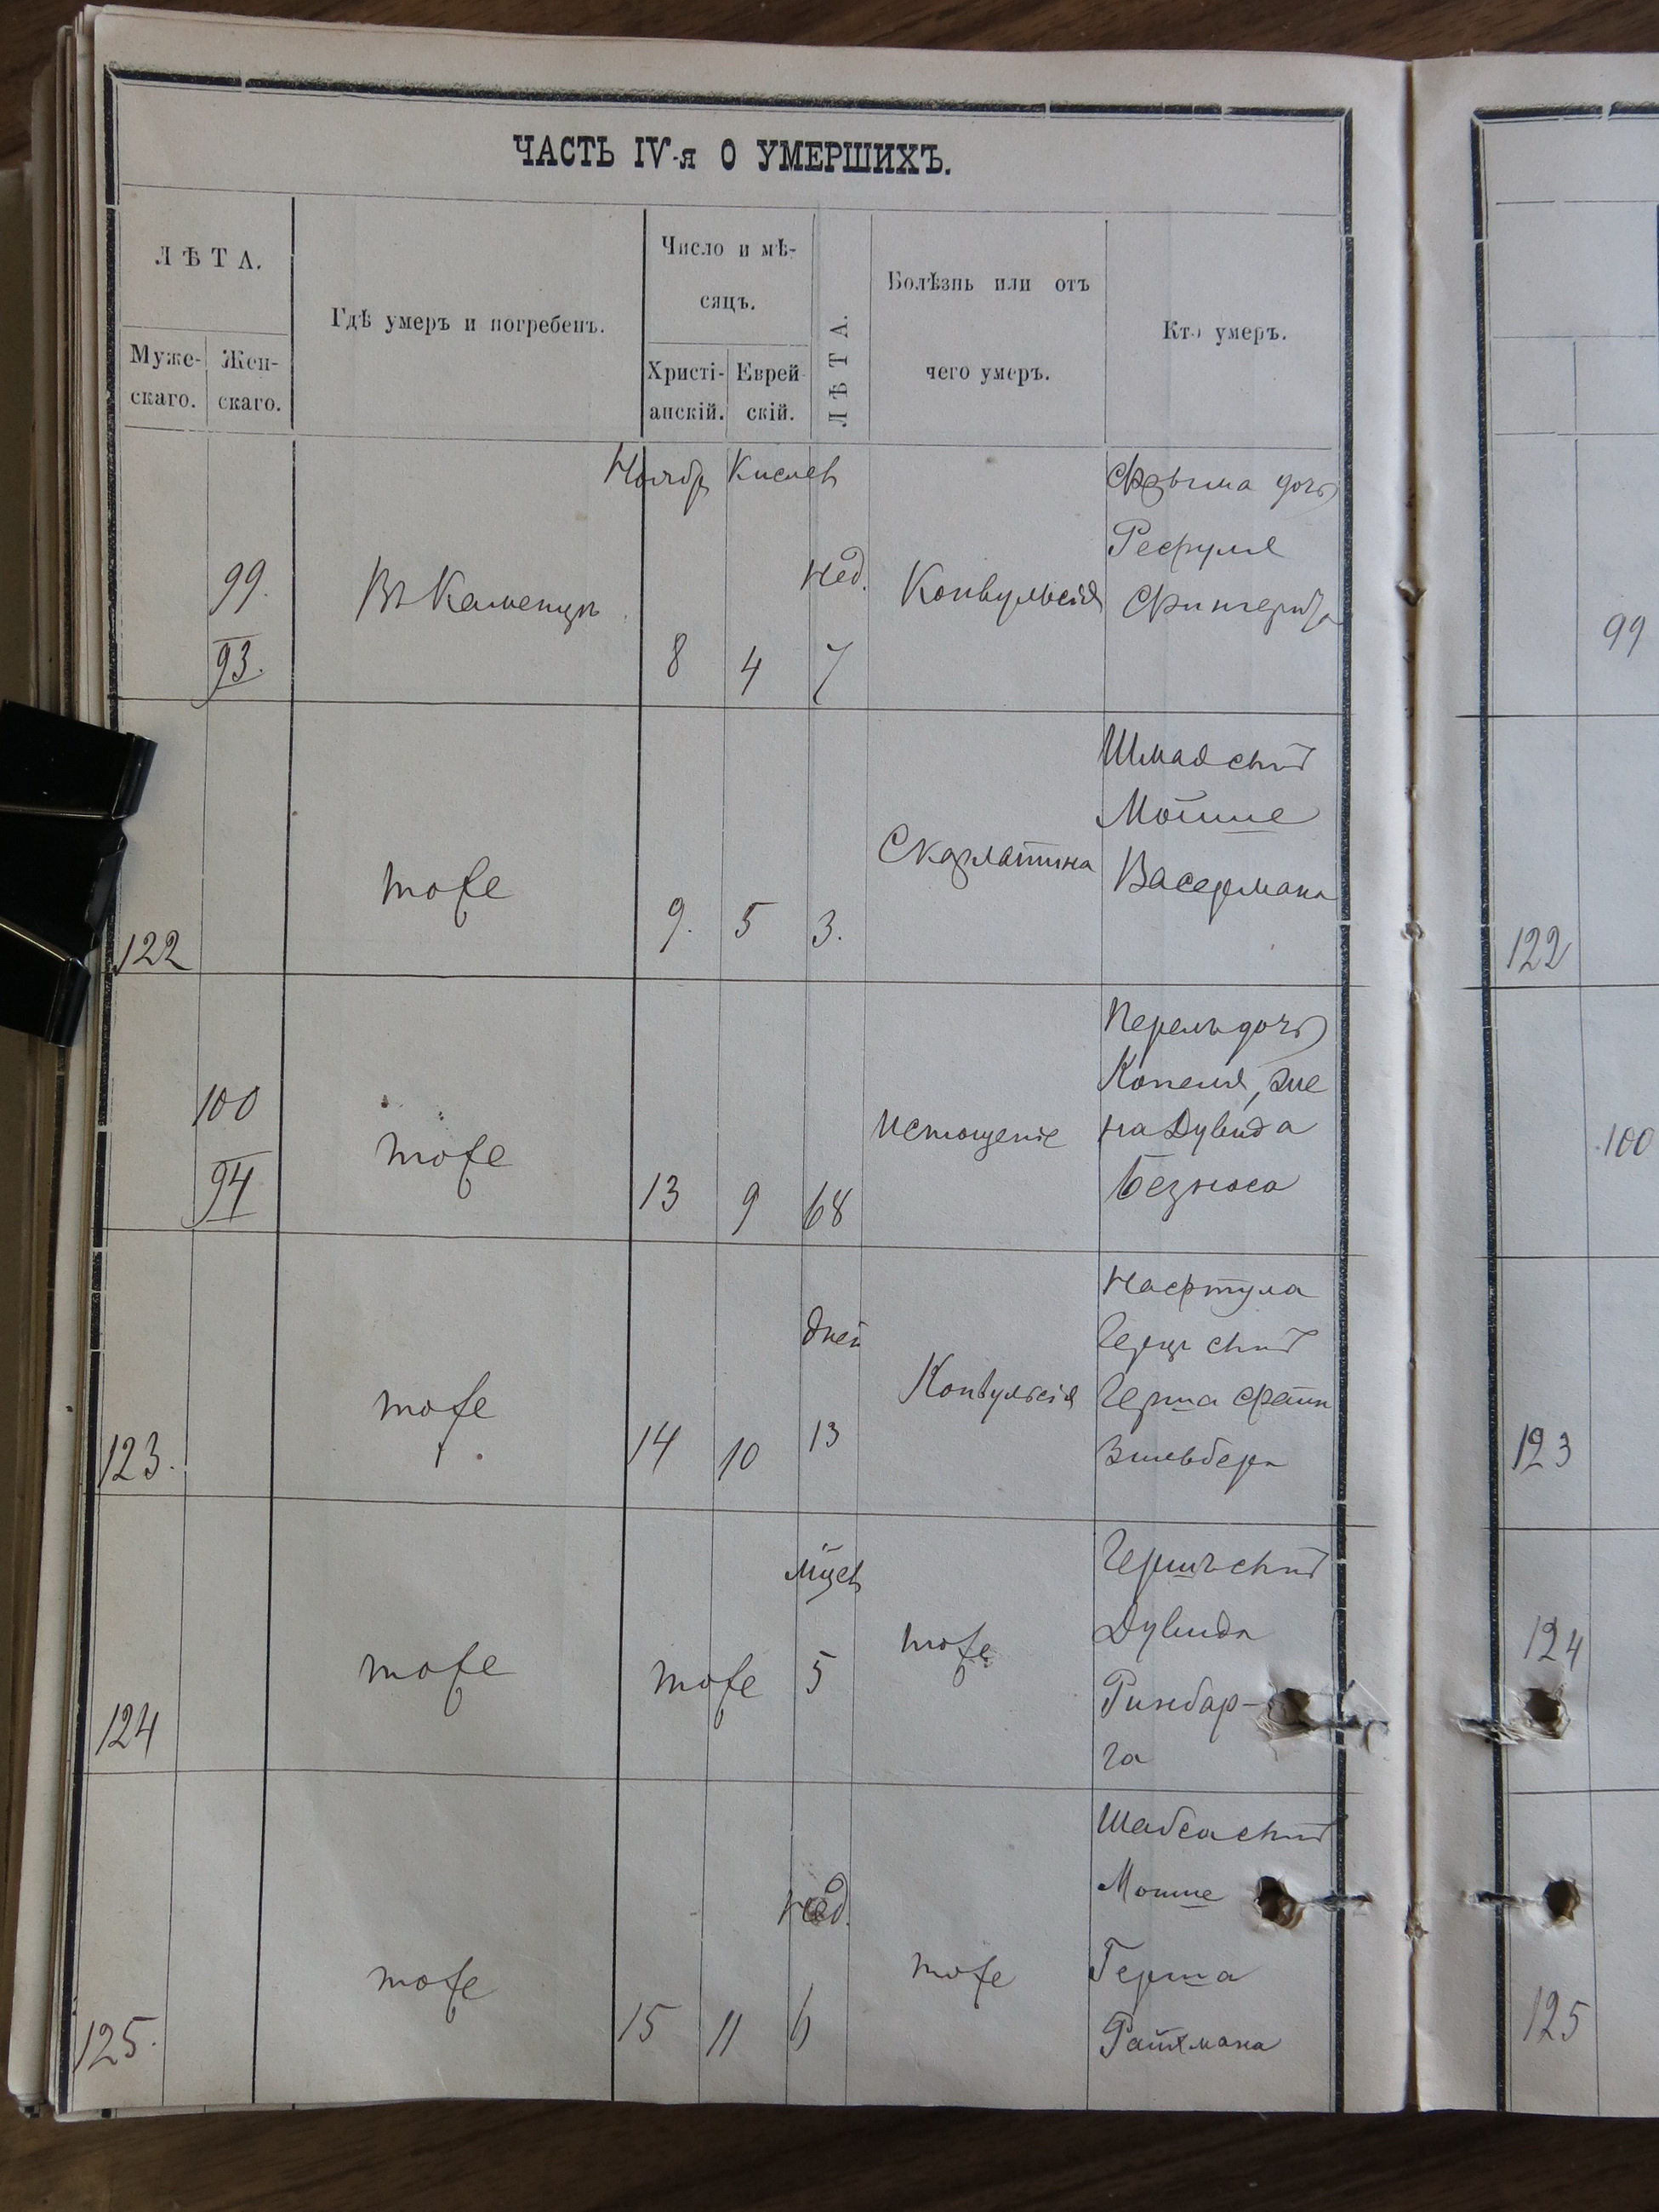 ЧАСТЬ IV-я О УМЕРШИХЪ.
ЛѢТА.
Муже-
скаго.
Жен-
скаго.
Гдѣ умеръ и погребенъ.
Число и мѣ-
сяцъ.
Христі-
анскій.
Еврей-
скій.
ЛѢТА.
Болѣзнь или отъ
чего умеръ.
Кто умеръ.
Ноябр Кислев
99.
93.
Въ Каменцѣ
8
4
нед.
7
Конвульсія
дочь
122
тоже
9.
5
3.
Скарлатина
Шмая сынъ
Мошше
Васермана
100
94
тоже
13
9
68
Истощеніе
Перель дочь
Копеля, же
на Дувида
Безноса
123.
тоже
14
10
дней
13
Конвульсія
Нафтула
Герцъ сынъ
Герша Фаин
зильберъ
124
тоже
тоже
мѣсев
5
тоже
Гершъ сынъ
Дувида
Ринбар-
га
125.
тоже
15
11
нед.
6
тоже
Шабса сынъ
Мошше
Герша
Райхмана
99
122
100
123
124
125